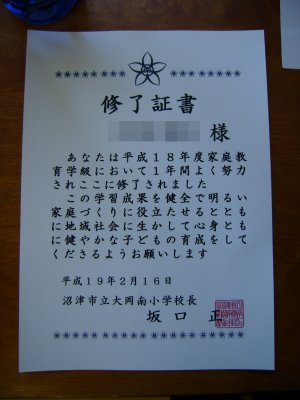 修了証書
様
あなたは平成18年度家庭教
育学級において1年間よく努力
されここに修了されました
この学習成果を健全で明るい
家庭づくりに役立たせるととも
に地域社会に生かして心身とも
に健やかな子どもの育成をして
くださるようお願いします
平成19年2月16日
沼津市立大岡南小学校長
坂口 正